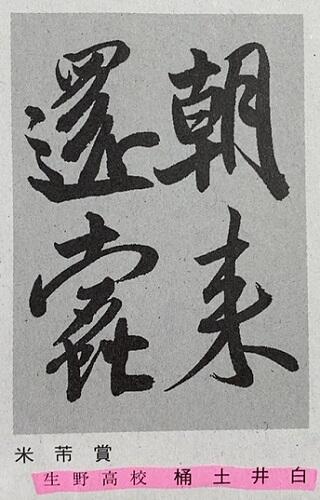 朝来
還蠹
米芾賞
生野高校 桶土井白